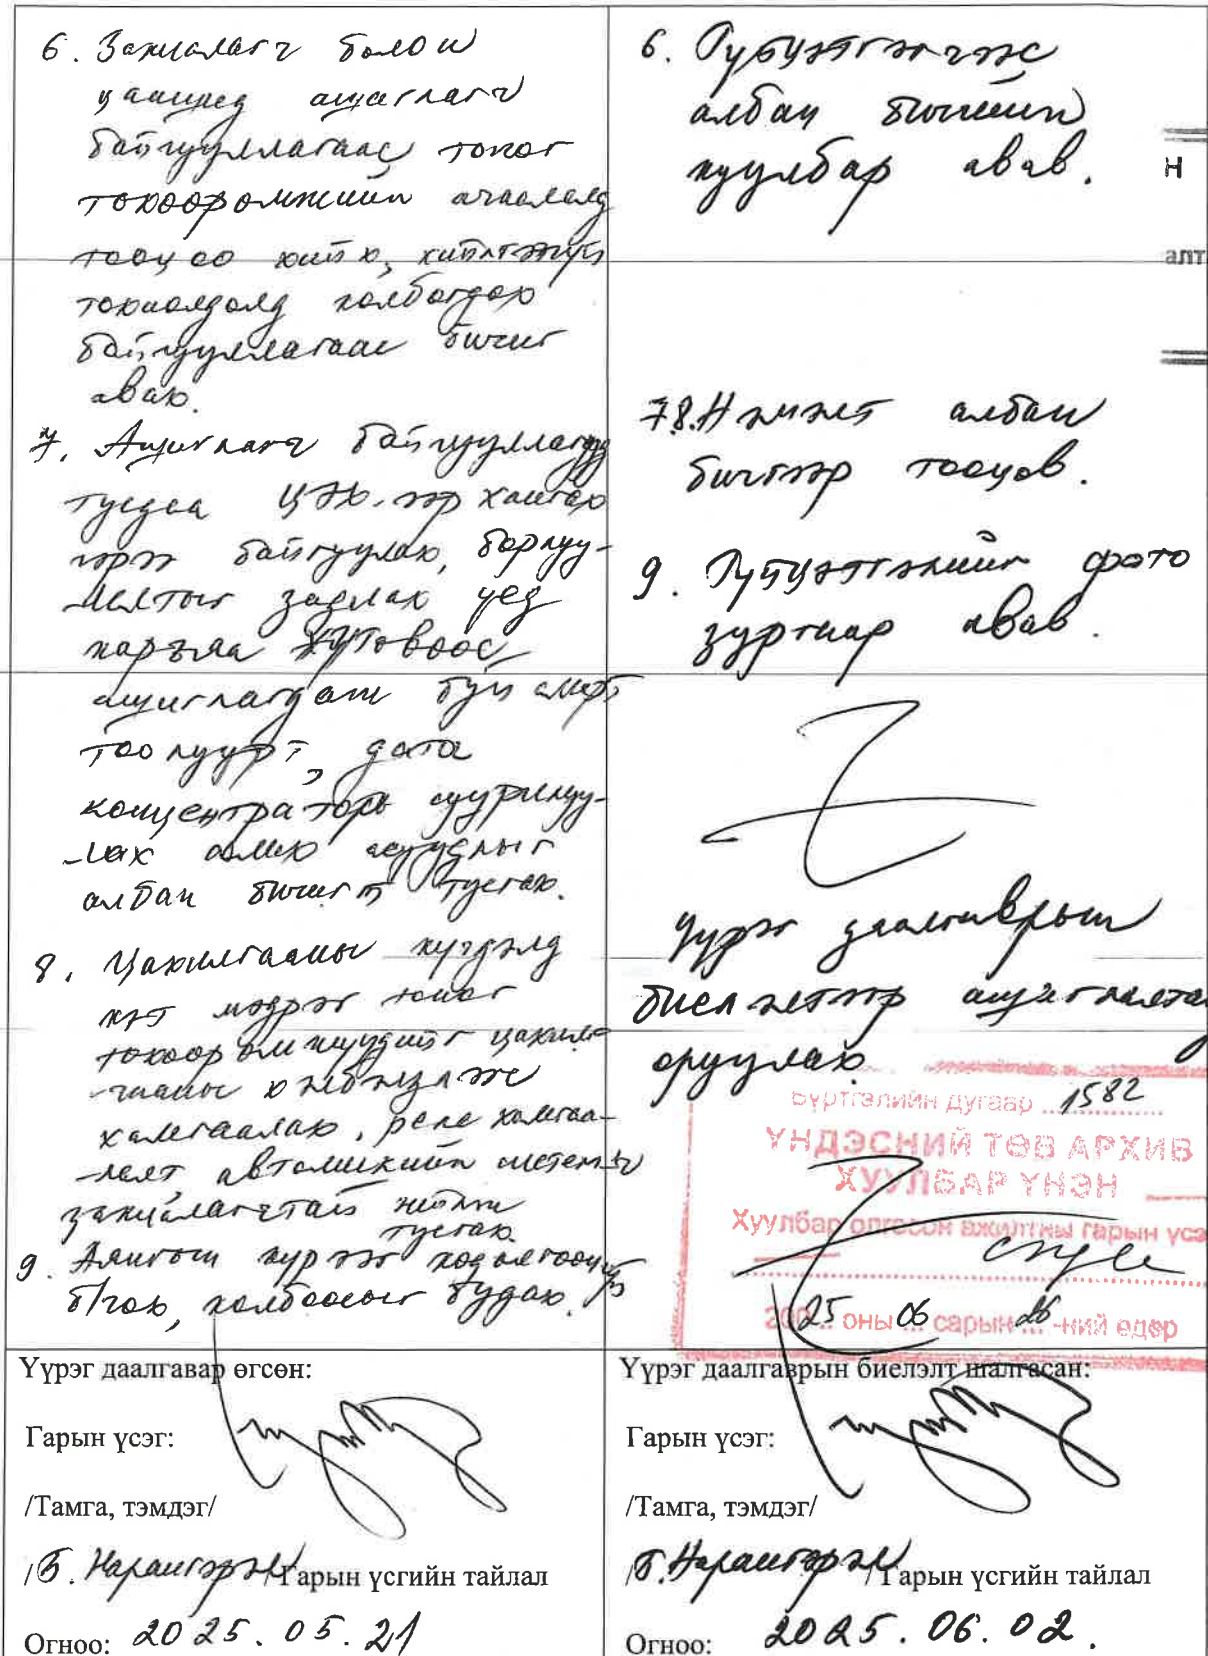 6. Захиалагч болон
цаашид ашиглагч
байгууллагаас тоног
төхөөрөмжийн ачаалалд
тооцоо хийх, хийлгэхгүй
тохиолдолд холбогдох
байгууллагаас бичиг
авах.
7. Ашиглагч байгууллагууд
тусдаа ЦЭХ-ээр хангах
гэрээ байгуулах, борлуу-
-лалтыг задлах үед
харъяа
ашиглагдаж буй смарт
тоолуурт, дата
концентратор суурилуу-
-лах асуудлыг
албан бичигт тусгах.
8. Цахилгааны хүчдэлд
хэт мэдрэг тоног
төхөөрөмжүүдийг цахил-
-гааны хэлбэлзлээс
хамгаалах, реле хамгаа-
-лалт, автоматикийн системыг
захиалагчтай
тусгах.
9. хүрээг
холбоосыг будах.
6. Гүйцэтгэгчээс
албан бичгийн
хуулбар авав.
Н
алт
7.8. Нэмэлт албан
бичгээр тооцов.
9. Гүйцэтгэлийг фото
зургаар авав.
Үүрэг даалгаврын
биелэлтээр ашиглалтад
оруулах.
Бүртгэлийн дугаар 1582
ҮНДЭСНИЙ ТӨВ АРХИВ
ХУУЛБАР ҮНЭН
Хуулбар олгосон ажилтны гарын үсэ
200 25 оны 06 сарын 26 -ний өдөр
Үүрэг даалгавар өгсөн:
Гарын үсэг:
/Тамга, тэмдэг/
/Б. Нарангэрэл/ Гарын үсгийн тайлал
Огноо: 2025.05.21
Үүрэг даалгаврын биелэлт шалгасан:
Гарын үсэг:
/Тамга, тэмдэг/
/Б. Нарангэрэл/ Гарын үсгийн тайлал
Огноо: 2025.06.02.